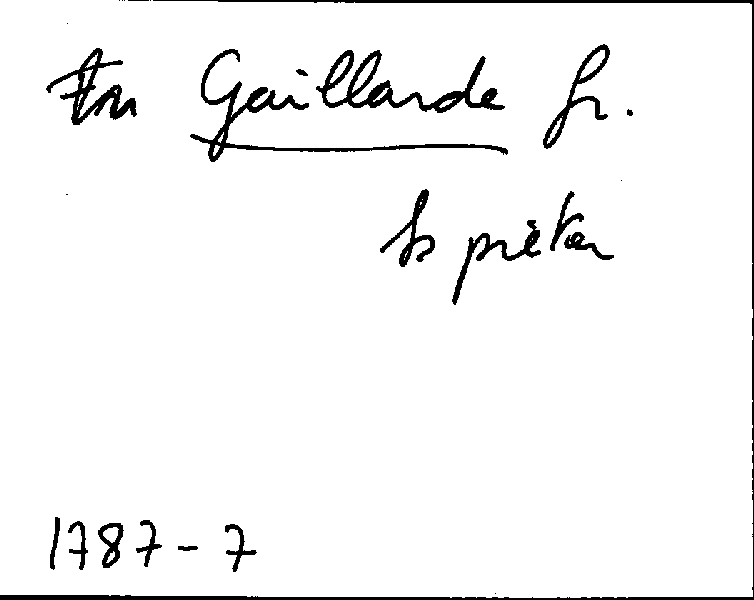 Gaillarde fr.
prêter
1787-7